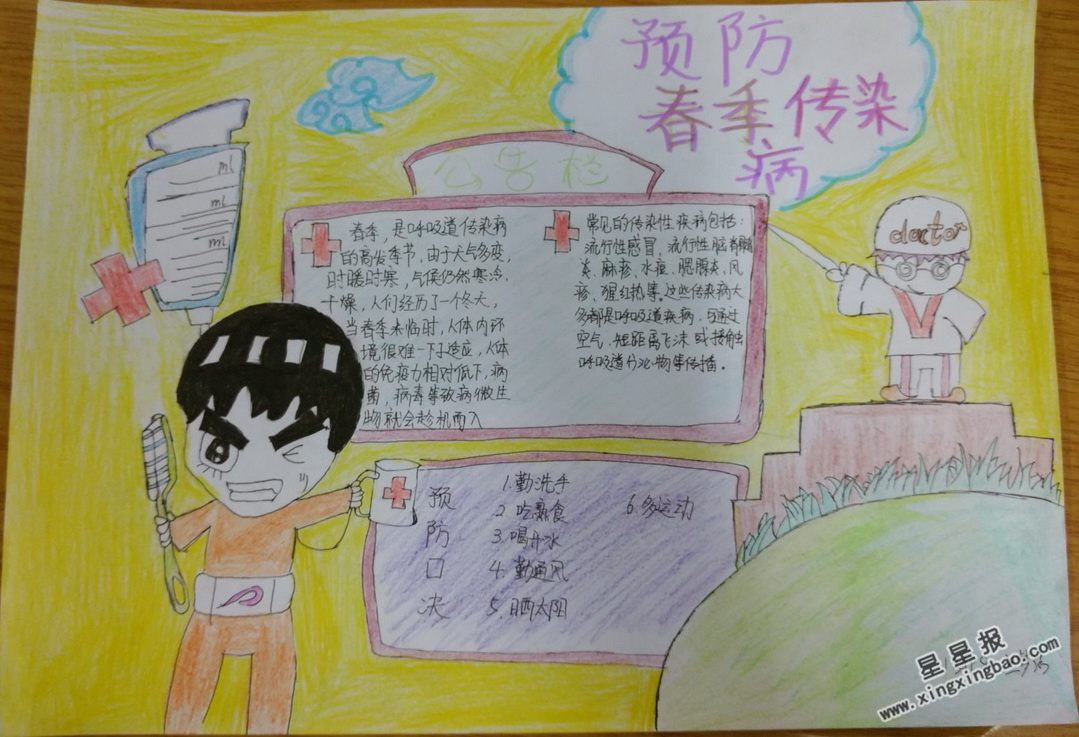 预防
春季传染
病
公告栏
ml
ml
ml
doctor
春季，是呼吸道传染病
的高发季节，由于天气多变，
时暖时寒，气候仍然寒冷，
干燥，人们经历了一个冬天，
当春季来临时，人体内环
境很难一下子适应，人体
的免疫力相对低下，病
菌，病毒等致病微生
物就会趁机而入
常见的传染性疾病包括：
流行性感冒，流行性脑脊髓膜
炎、麻疹、水痘、腮腺炎，风
疹、猩红热等。这些传染病大
多都是呼吸道疾病，可通过
空气、短距离飞沫或接触
呼吸道分泌物等传播。
预
防
口
决
1.勤洗手
2.吃熟食
3.喝开水
4.勤通风
5.晒太阳
6.多运动
星星报
www.xingxingbao.com